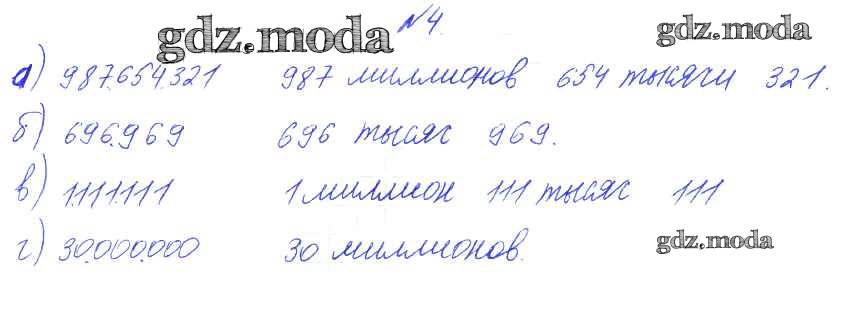 gdz.moda №4. gdz.moda
а) 987.654.321 987 миллионов 654 тысячи 321.
б) 696.969 696 тысяч 969.
в) 1.111.111 1 миллион 111 тысяч 111
г) 30.000.000 30 миллионов. gdz.moda